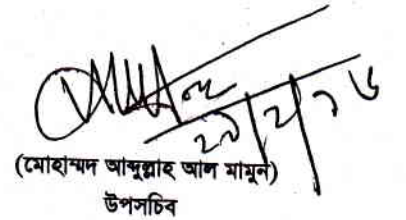 ২০/২/১৬
(মোহাম্মদ আব্দুল্লাহ আল মামুন)
উপসচিব